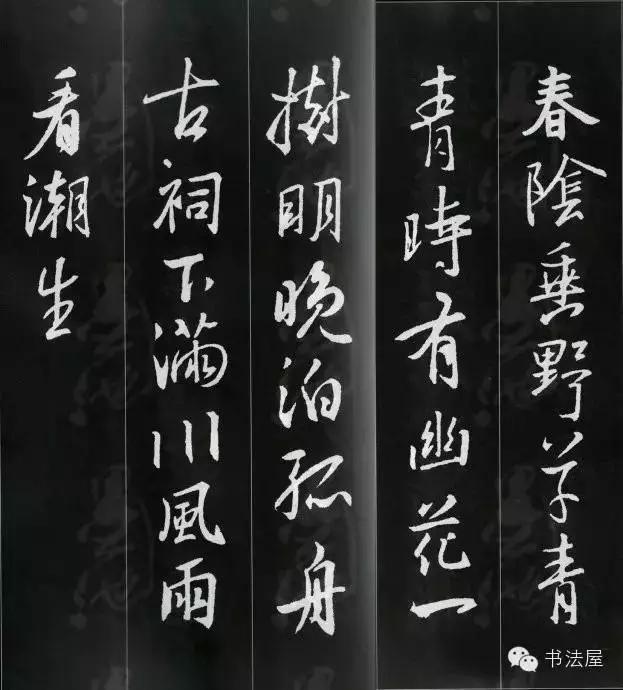 春陰垂野草青
青時有幽花一
樹明晚泊孤舟
古祠下滿川風雨
看潮生
书法屋